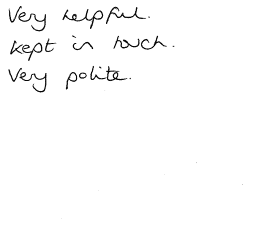 Very helpful.
kept in touch.
Very polite.